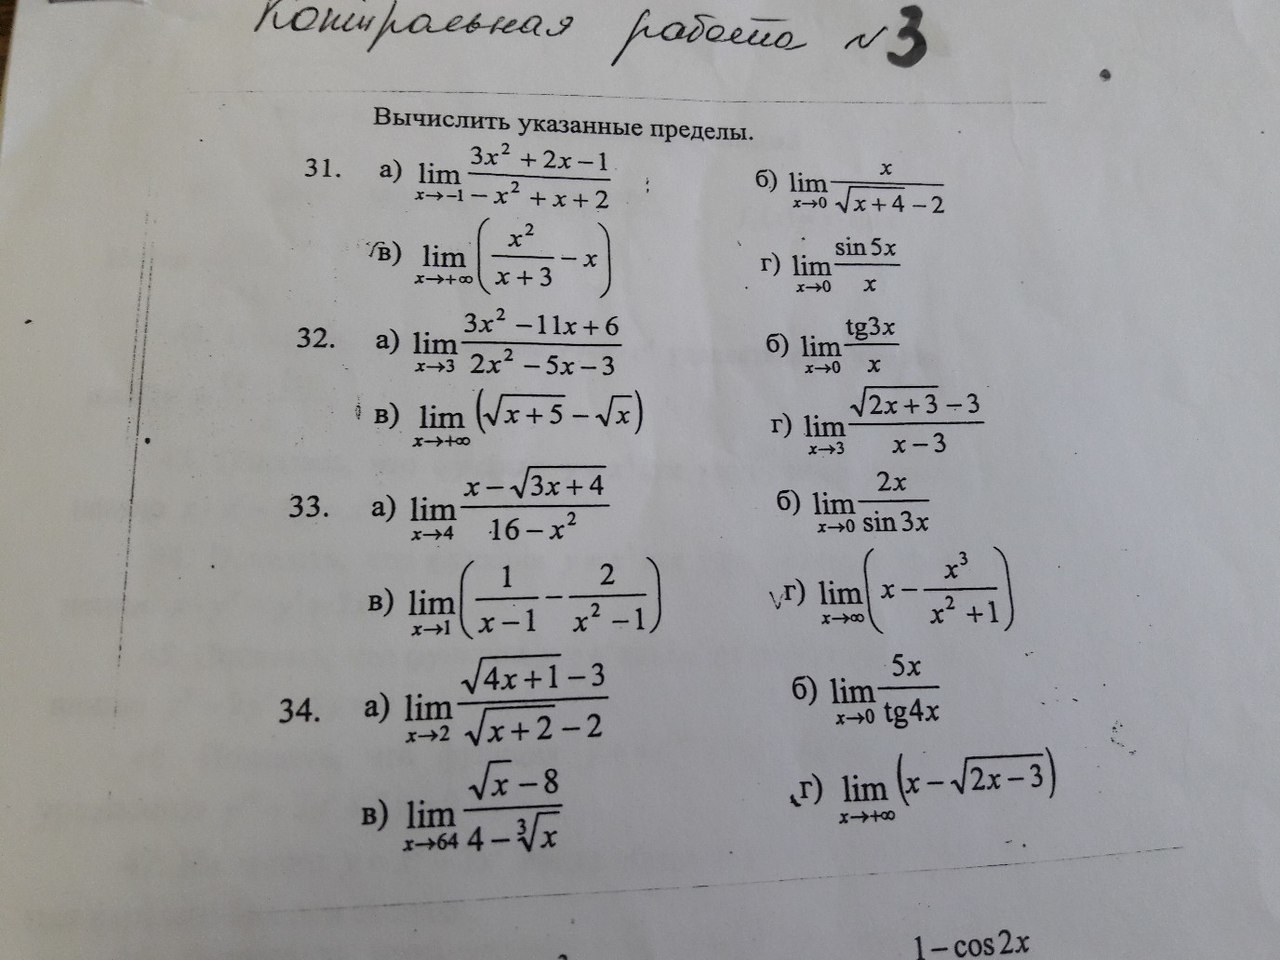 Контрольная работа №3
Вычислить указанные пределы.
31. а) lim x→−1 (3x² + 2x − 1)/(−x² + x + 2) б) lim x→0 x/(√(x+4) − 2)
в) lim x→+∞ (x²/(x+3) − x) г) lim x→0 sin 5x/x
32. а) lim x→3 (3x² − 11x + 6)/(2x² − 5x − 3) б) lim x→0 tg3x/x
в) lim x→+∞ (√(x+5) − √x) г) lim x→3 (√(2x+3) − 3)/(x − 3)
33. а) lim x→4 (x − √(3x+4))/(16 − x²) б) lim x→0 2x/sin 3x
в) lim x→1 (1/(x−1) − 2/(x²−1)) г) lim x→∞ (x − x³/(x²+1))
34. а) lim x→2 (√(4x+1) − 3)/(√(x+2) − 2) б) lim x→0 5x/tg4x
в) lim x→64 (√x − 8)/(4 − ∛x) г) lim x→+∞ (x − √(2x−3))
1 − cos 2x